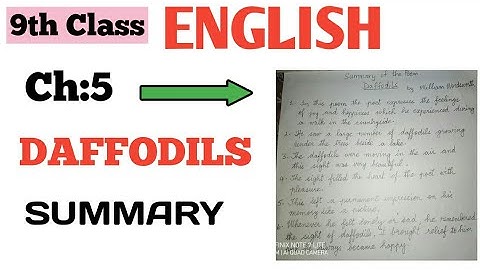 9th Class
ENGLISH
Ch:5
DAFFODILS
SUMMARY
Summary of the Poem
Daffodils by William Wordsworth
1. In this poem the poet expresses the feelings
of joy and happiness which he experienced during
a walk in the countryside.
2. He saw a large number of daffodils growing
under the trees beside a lake.
3. The daffodils were moving in the air and
this sight was very beautiful.
4. The sight filled the heart of the poet with
pleasure.
5. This left a permanent impression on his
memory like a picture.
6. Whenever he felt lonely or sad he remembered
the sight of daffodils, I brought relief to him
always became happy
FINIX NOTE 7 LITE
M | AI QUAD CAMERA